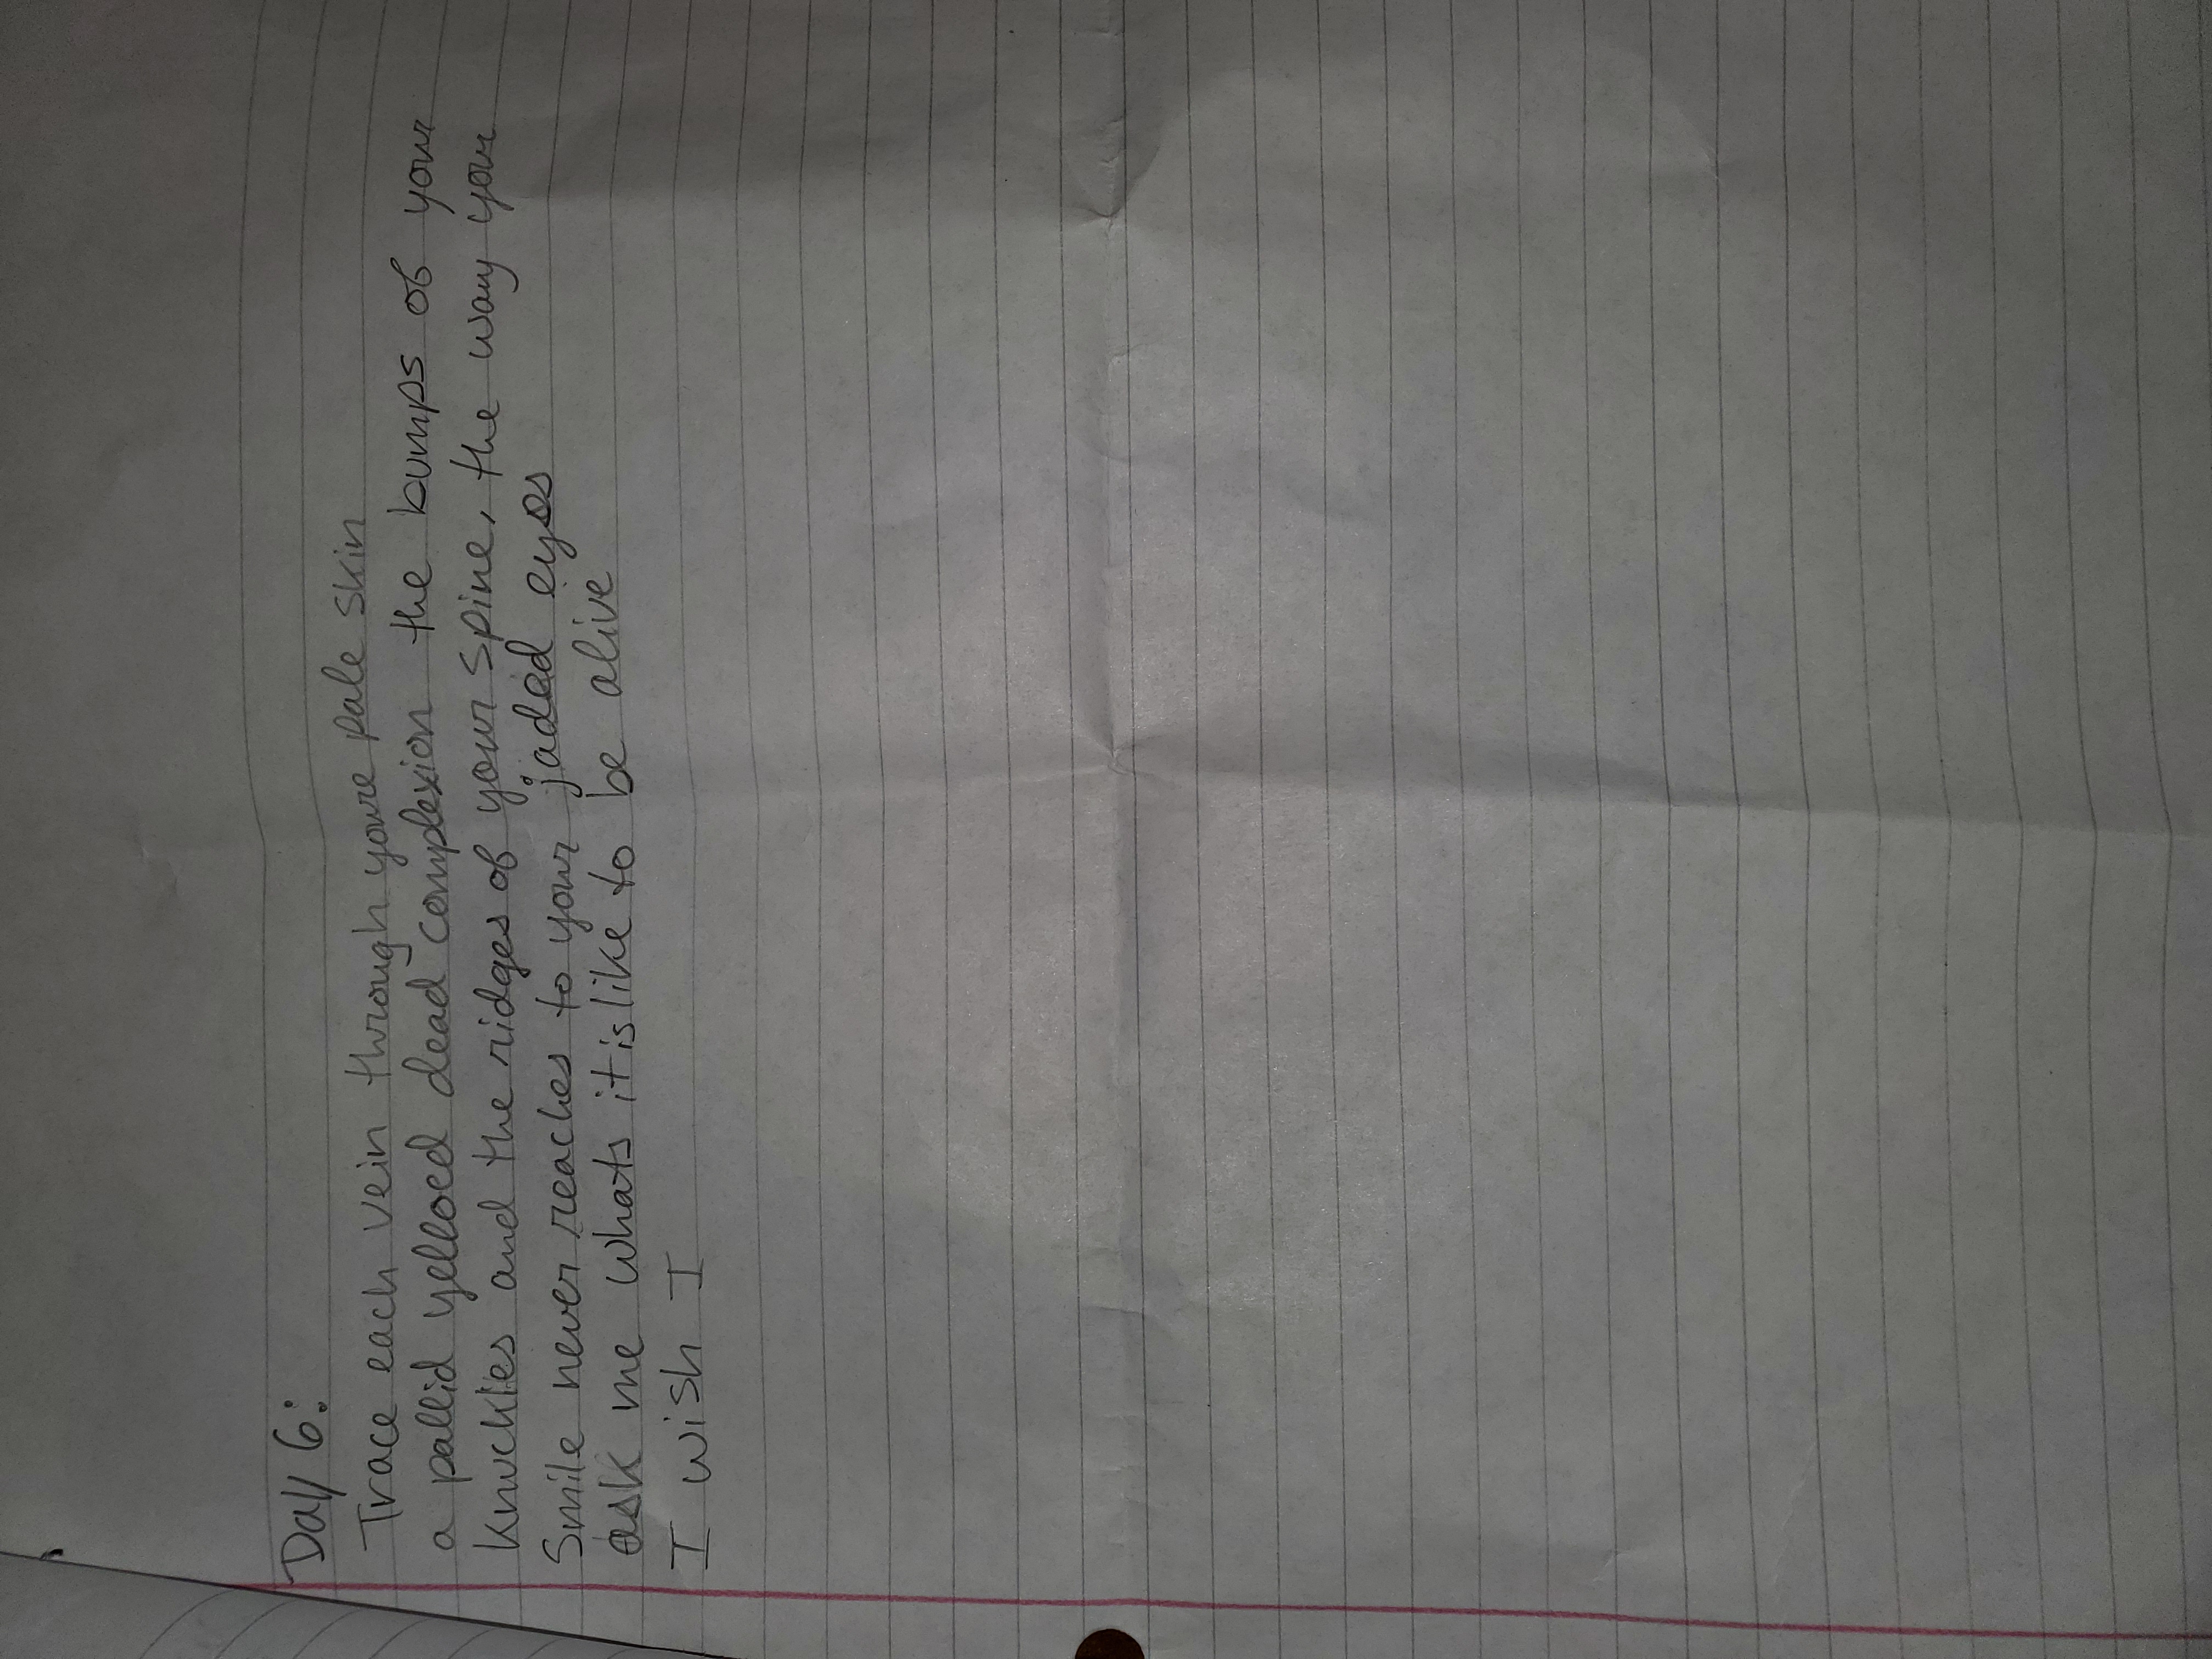 Day 6:
Trace each vein through youre pale skin
a pallid yelloed dead complexion the bumps of your
knuckles and the ridges of your spine, the way your
Smile never reaches to your jaded eyes
ask me whats it is like to be alive
I wish I